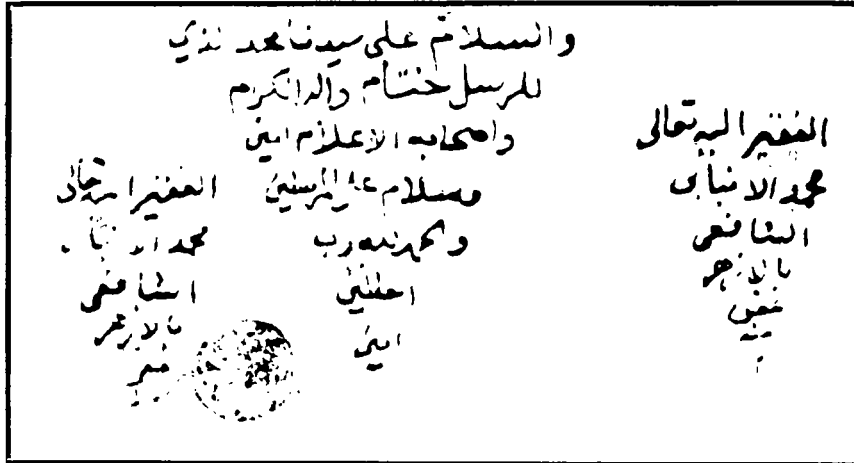 والسلام على سيدنا محمد الذي
للرسل ختام واله الكرام
واصحابه الاعلام امين
وسلام على المرسلين
والحمد لله رب
العلمين
امين
الفقير اليه تعالى
محمد الانبابى
الشافعى
بالازهر
عفى
عنه
الفقير اليه تعالى
محمد الانبابى
الشافعى
بالازهر